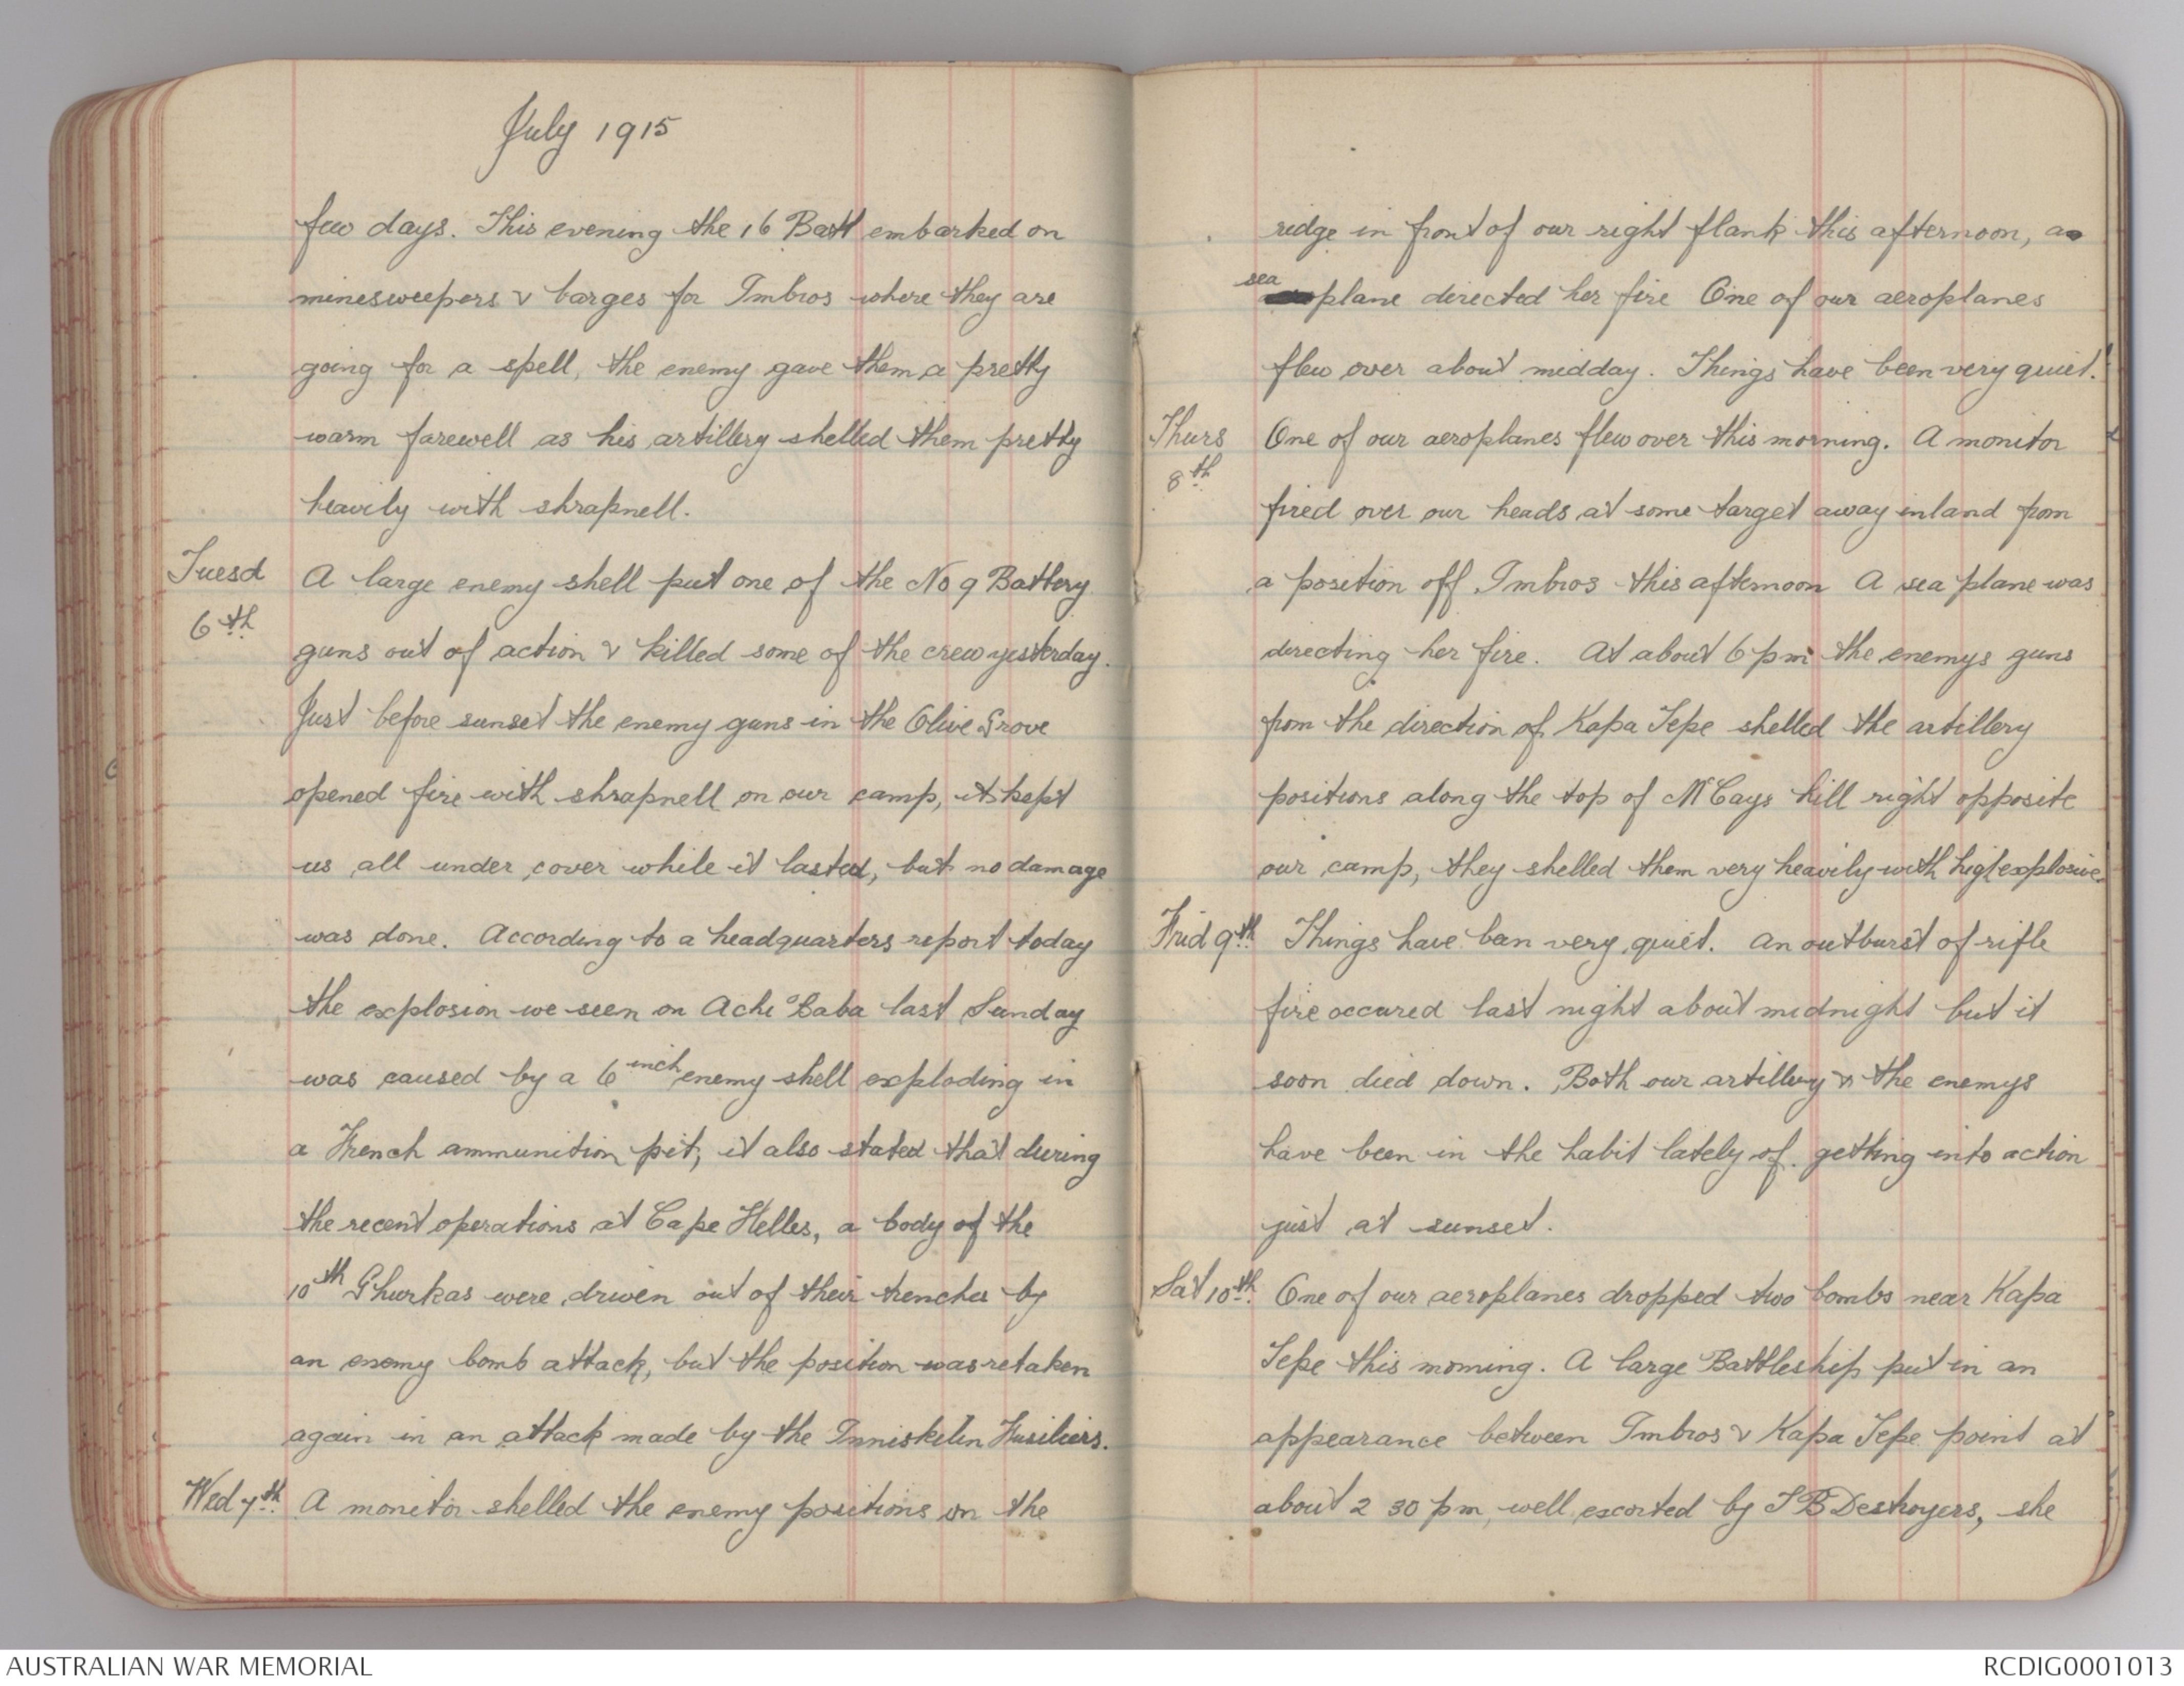 July 1915
few days. This evening the 16 Batt embarked on
minesweepers & barges for Imbros where they are
going for a spell, the enemy gave them a pretty
warm farewell as his artillery shelled them pretty
heavily with shrapnell.
Tuesd 6th A large enemy shell put one of the No 9 Battery
guns out of action & killed some of the crew yesterday.
Just before sunset the enemy guns in the Olive Grove
opened fire with shrapnell on our camp, it kept
us all under cover while it lasted, but no damage
was done. According to a headquarters report today
the explosion we seen on Achi Baba last Sunday
was caused by a 6 inch enemy shell exploding in
a French ammunition pit, it also stated that during
the recent operations at Cape Helles, a body of the
10th Ghurkas were driven out of their trenches by
an enemy bomb attack, but the position was retaken
again in an attack made by the Inniskilin Fusiliers.
Wed 7th. A monitor shelled the enemy positions on the
ridge in front of our right flank this afternoon, a
sea plane directed her fire One of our aeroplanes
flew over about midday. Things have been very quiet.
Thurs 8th One of our aeroplanes flew over this morning. A monitor
fired over our heads at some target away inland from
a position off Imbros this afternoon A sea plane was
directing her fire. At about 6 pm the enemys guns
from the direction of Kapa Tepe shelled the artillery
positions along the top of McCays hill right opposite
our camp, they shelled them very heavily with high explosive.
Frid 9th. Things have ben very quiet. An outburst of rifle
fire occured last night about midnight but it
soon died down. Both our artillery & the enemys
have been in the habit lately of getting into action
just at sunset.
Sat 10th. One of our aeroplanes dropped two bombs near Kapa
Tepe this morning. A large Battleship put in an
appearance between Imbros & Kapa Tepe point at
about 2 30 pm, well escorted by T B Destroyers, she
AUSTRALIAN WAR MEMORIAL
RCDIG0001013